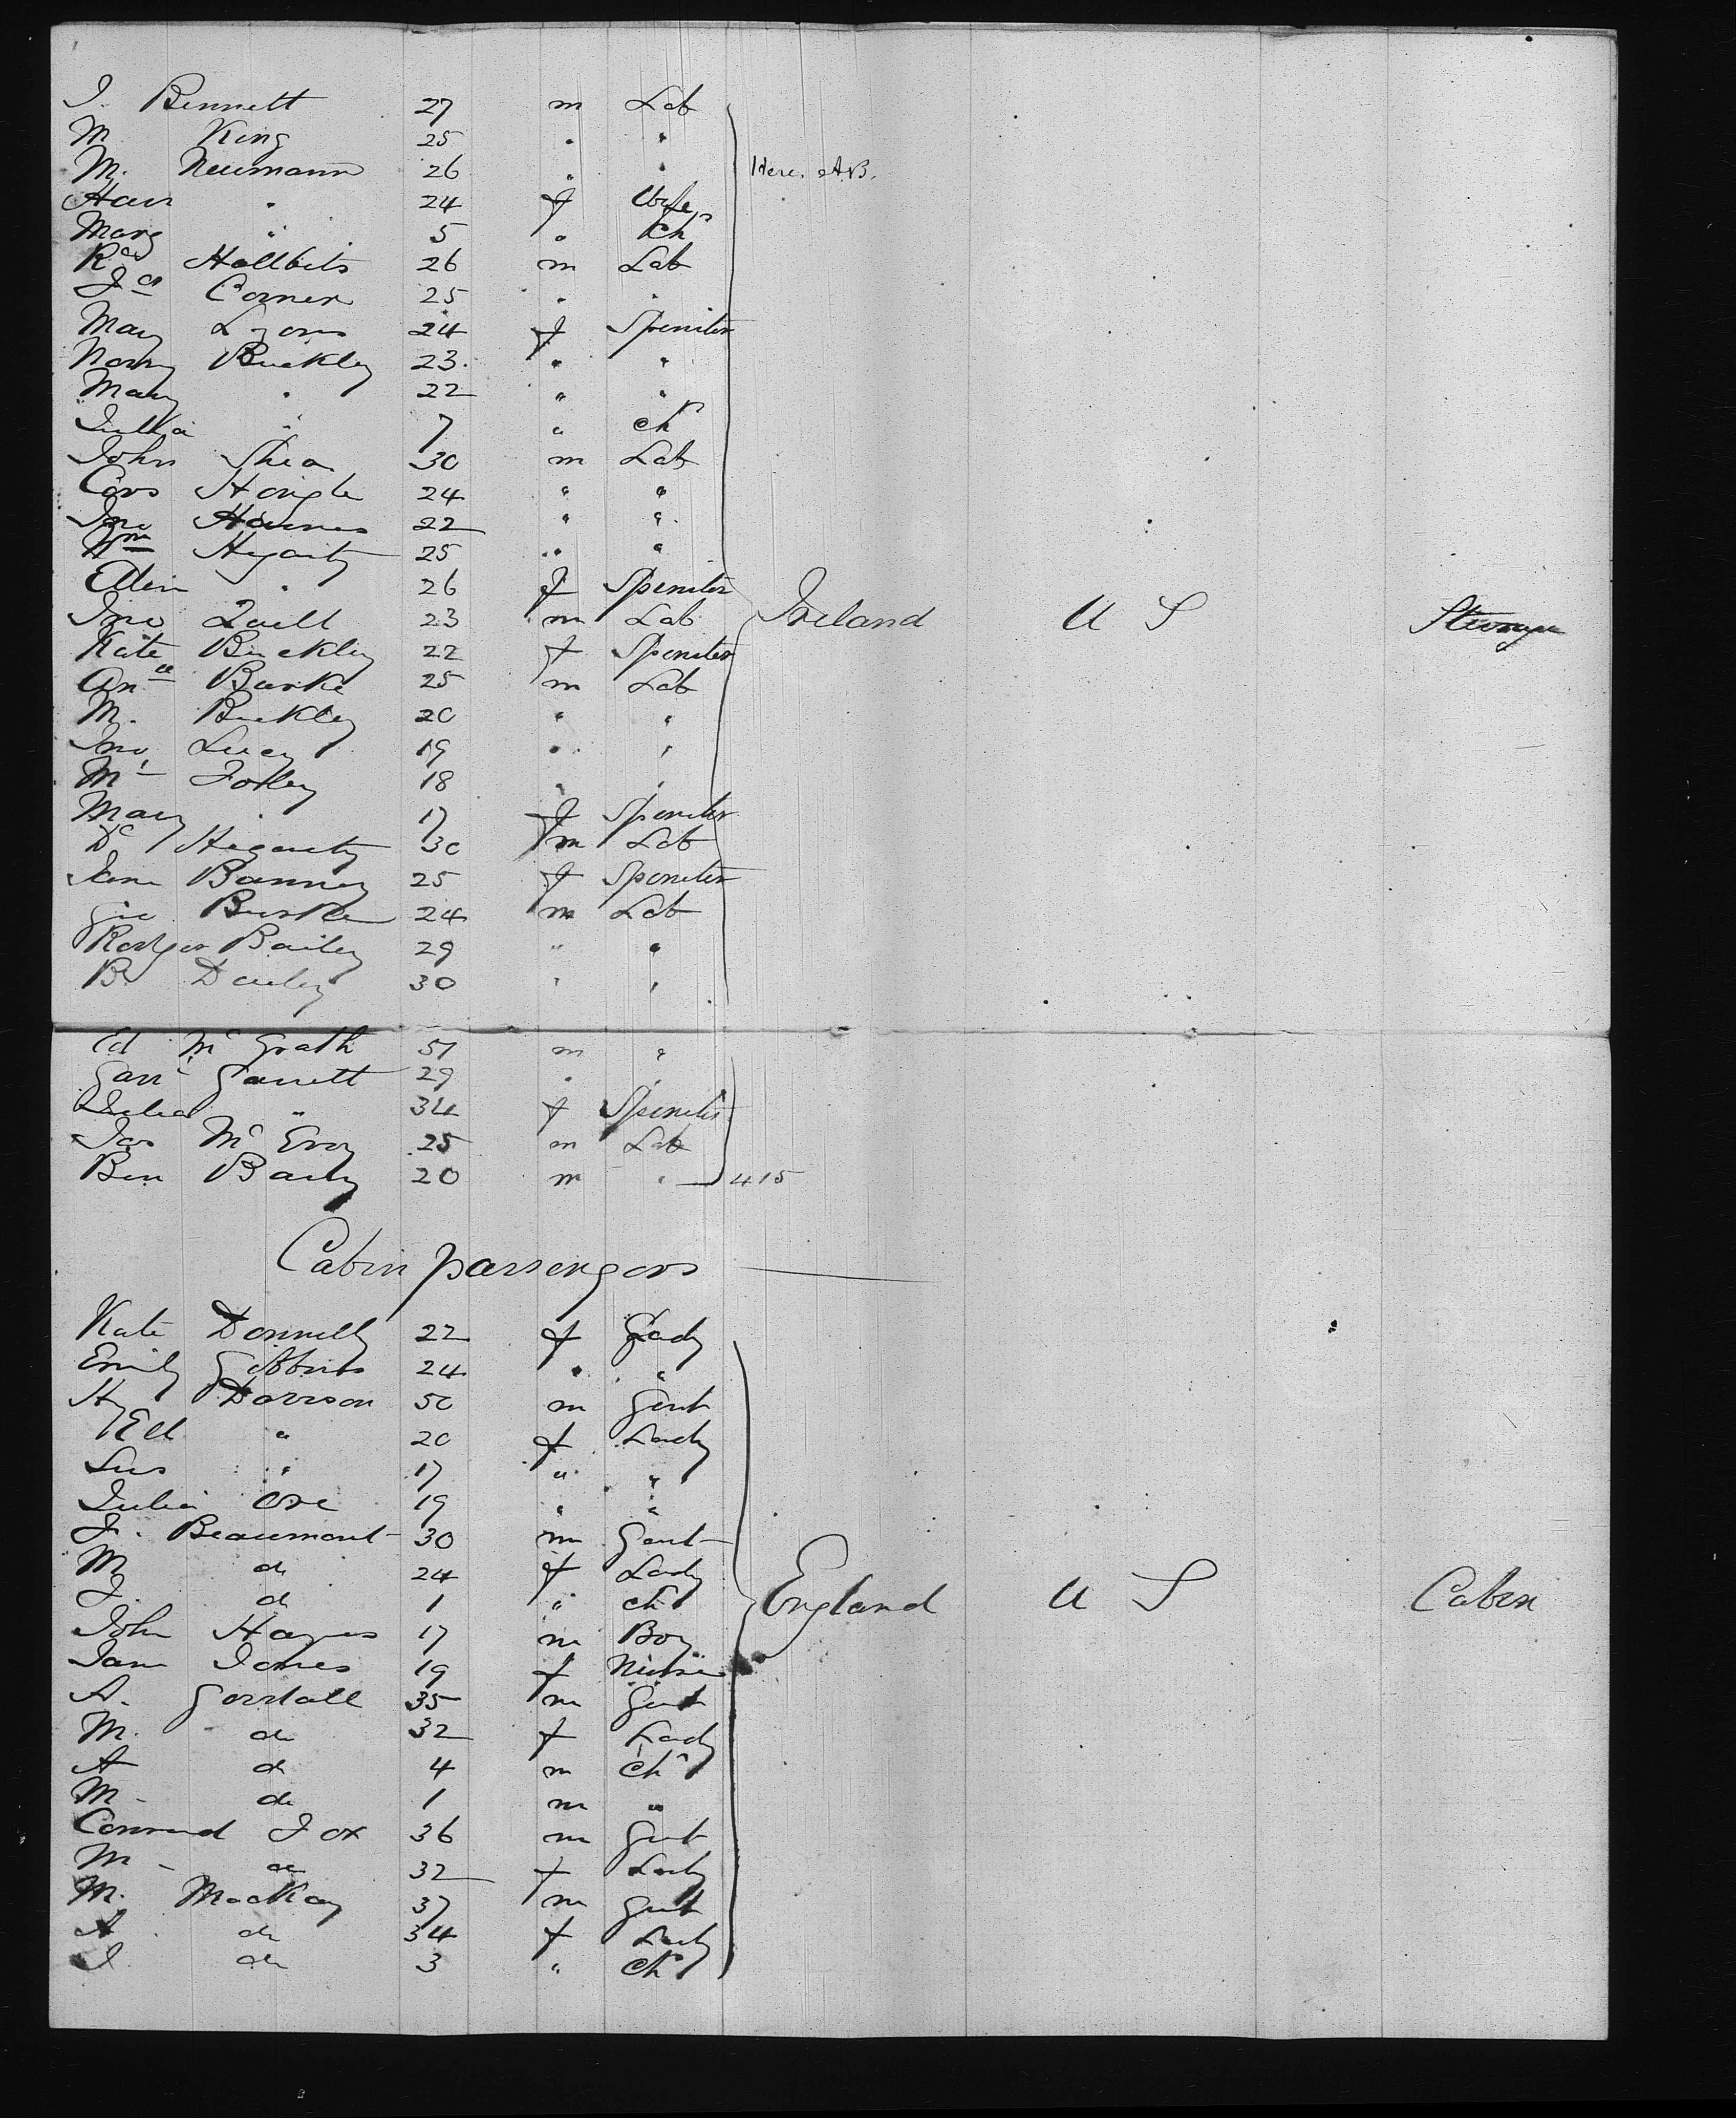 J. Bennett 27 m Lab
M King 25 " "
M. Neumann 26 " " Here. A.B.
Han " 24 f Wife
Marg " 5 " Ch
Rd Hallbits 26 m Lab
Jas Corner 25 " "
Mary Lyons 24 f Spinster
Norry Buckley 23 " "
Mary " 22 " "
Julia " 7 " Ch
John Shea 30 m Lab
Cors 24 " "
Jno 22 " "
Wm Hegarty 25 " "
Ellen " 26 f Spinster
Jno Quill 23 m Lab Ireland U S Steerage
Kate Buckley 22 f Spinster
Burke 25 m Lab
M. Buckley 20 " "
Jno Lucy 19 " "
Ml Folley 18 " "
Mary " 17 f Spinster
Dl Hegarty 30 m Lab
Jane Banney 25 f Spinster
Geo Burke 24 m Lab
Rodger Bailey 29 " "
B Dauley 30 " "
Ed McGrath 51 m "
Garrett 29 " "
Julia " 34 f Spinster
Jas McEvoy 25 m Lab
Ben Barly 20 m " 415
Cabin passengers
Kate Donnelly 22 f Lady
Emily Gibbins 24 " "
Hy Davison 50 m Gent
Ell " 20 f Lady
Sus " 17 " "
Julia Ore 19 " "
J. Beaumont 30 m Gent
M do 24 f Lady
J. do 1 " Ch England U S Cabin
John Haynes 17 m Boy
Jane Jones 19 f Nurse
A. Goodall 35 m Gent
M. do 32 f Lady
A do 4 m Ch
M - do 1 m "
Conrad Fox 36 m Gent
M - do 32 f Lady
M. MacKay 37 m Gent
A do 34 f Lady
J do 3 " Ch